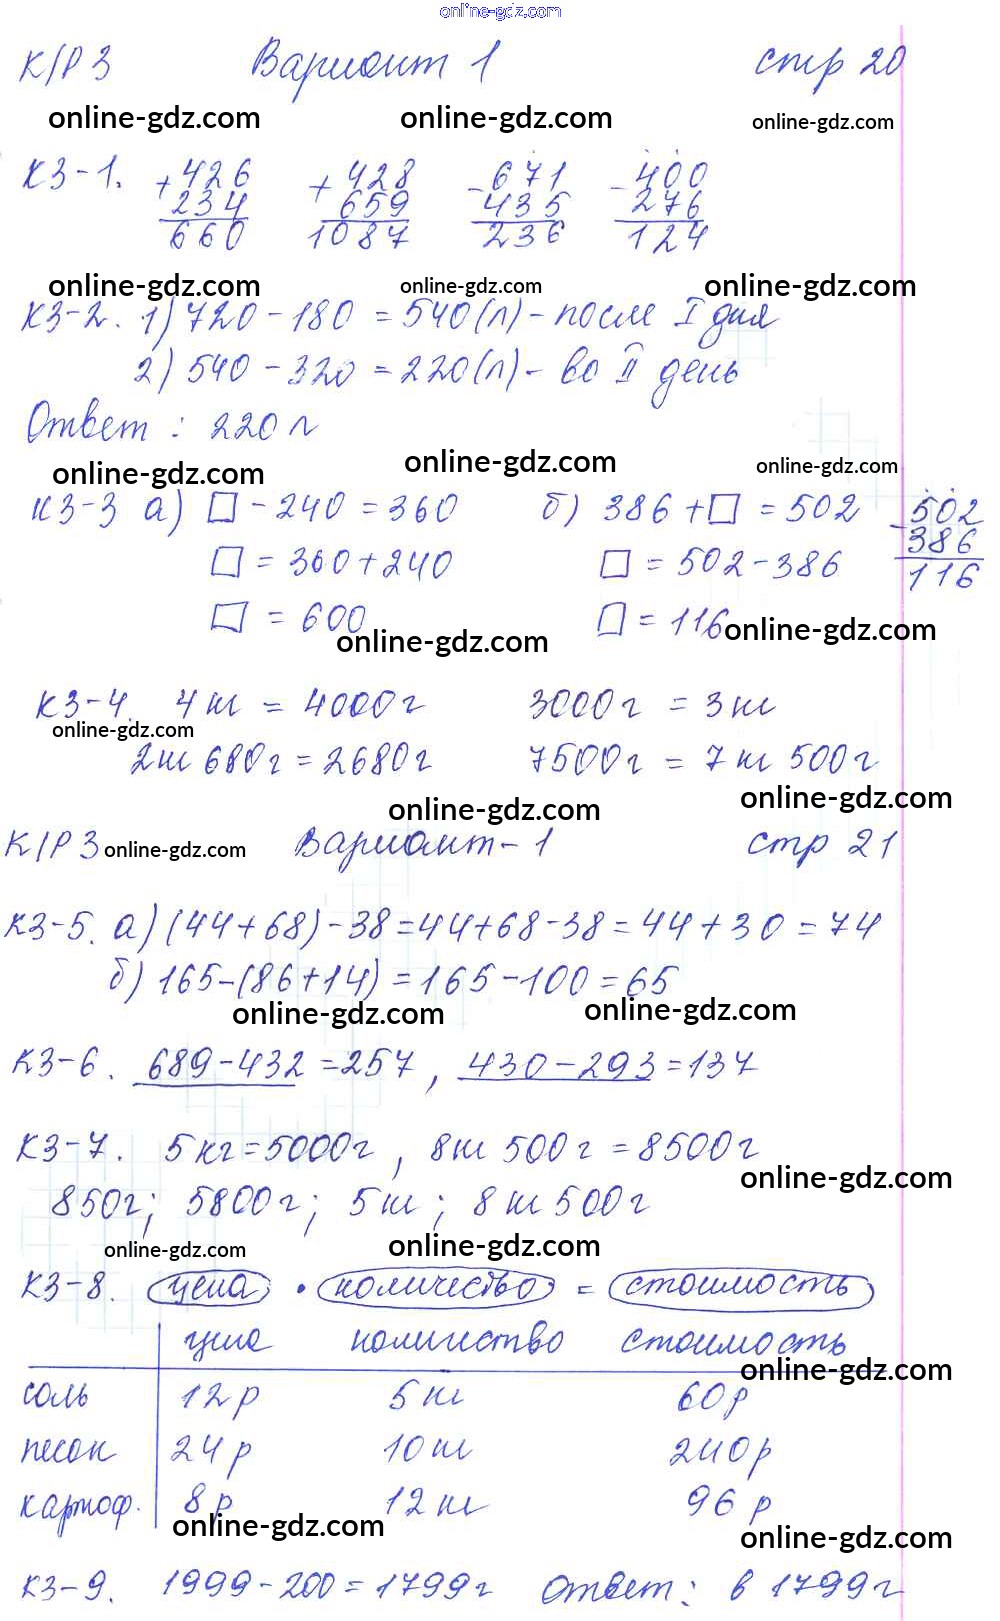 online-gdz.com
К/Р 3 Вариант 1 стр 20
online-gdz.com online-gdz.com online-gdz.com
К3-1. +426 +428 -671 -400
234 659 435 276
660 1087 236 124
online-gdz.com online-gdz.com online-gdz.com
К3-2. 1) 720 - 180 = 540 (л) - после I дня
2) 540 - 320 = 220 (л) - во II день
Ответ : 220 л
online-gdz.com online-gdz.com online-gdz.com
К3-3 а) □ - 240 = 360 б) 386 + □ = 502 -502
□ = 360 + 240 □ = 502 - 386 386
□ = 600 □ = 116 116
online-gdz.com online-gdz.com
К3-4. 4 кг = 4000 г 3000 г = 3 кг
online-gdz.com
2 кг 680 г = 2680 г 7500 г = 7 кг 500 г
online-gdz.com online-gdz.com
К/Р 3 online-gdz.com Вариант - 1 стр 21
К3-5. а) (44 + 68) - 38 = 44 + 68 - 38 = 44 + 30 = 74
б) 165 - (86 + 14) = 165 - 100 = 65
online-gdz.com online-gdz.com
К3-6. 689 - 432 = 257 , 430 - 293 = 137
К3-7. 5 кг = 5000 г , 8 кг 500 г = 8500 г
online-gdz.com
850 г; 5800 г; 5 кг; 8 кг 500 г
online-gdz.com online-gdz.com
К3-8. цена · количество = стоимость
цена количество стоимость
online-gdz.com
соль 12 р 5 кг 60 р
песок 24 р 10 кг 240 р
картоф. 8 р 12 кг 96 р
online-gdz.com online-gdz.com
К3-9. 1999 - 200 = 1799 г Ответ: в 1799 г